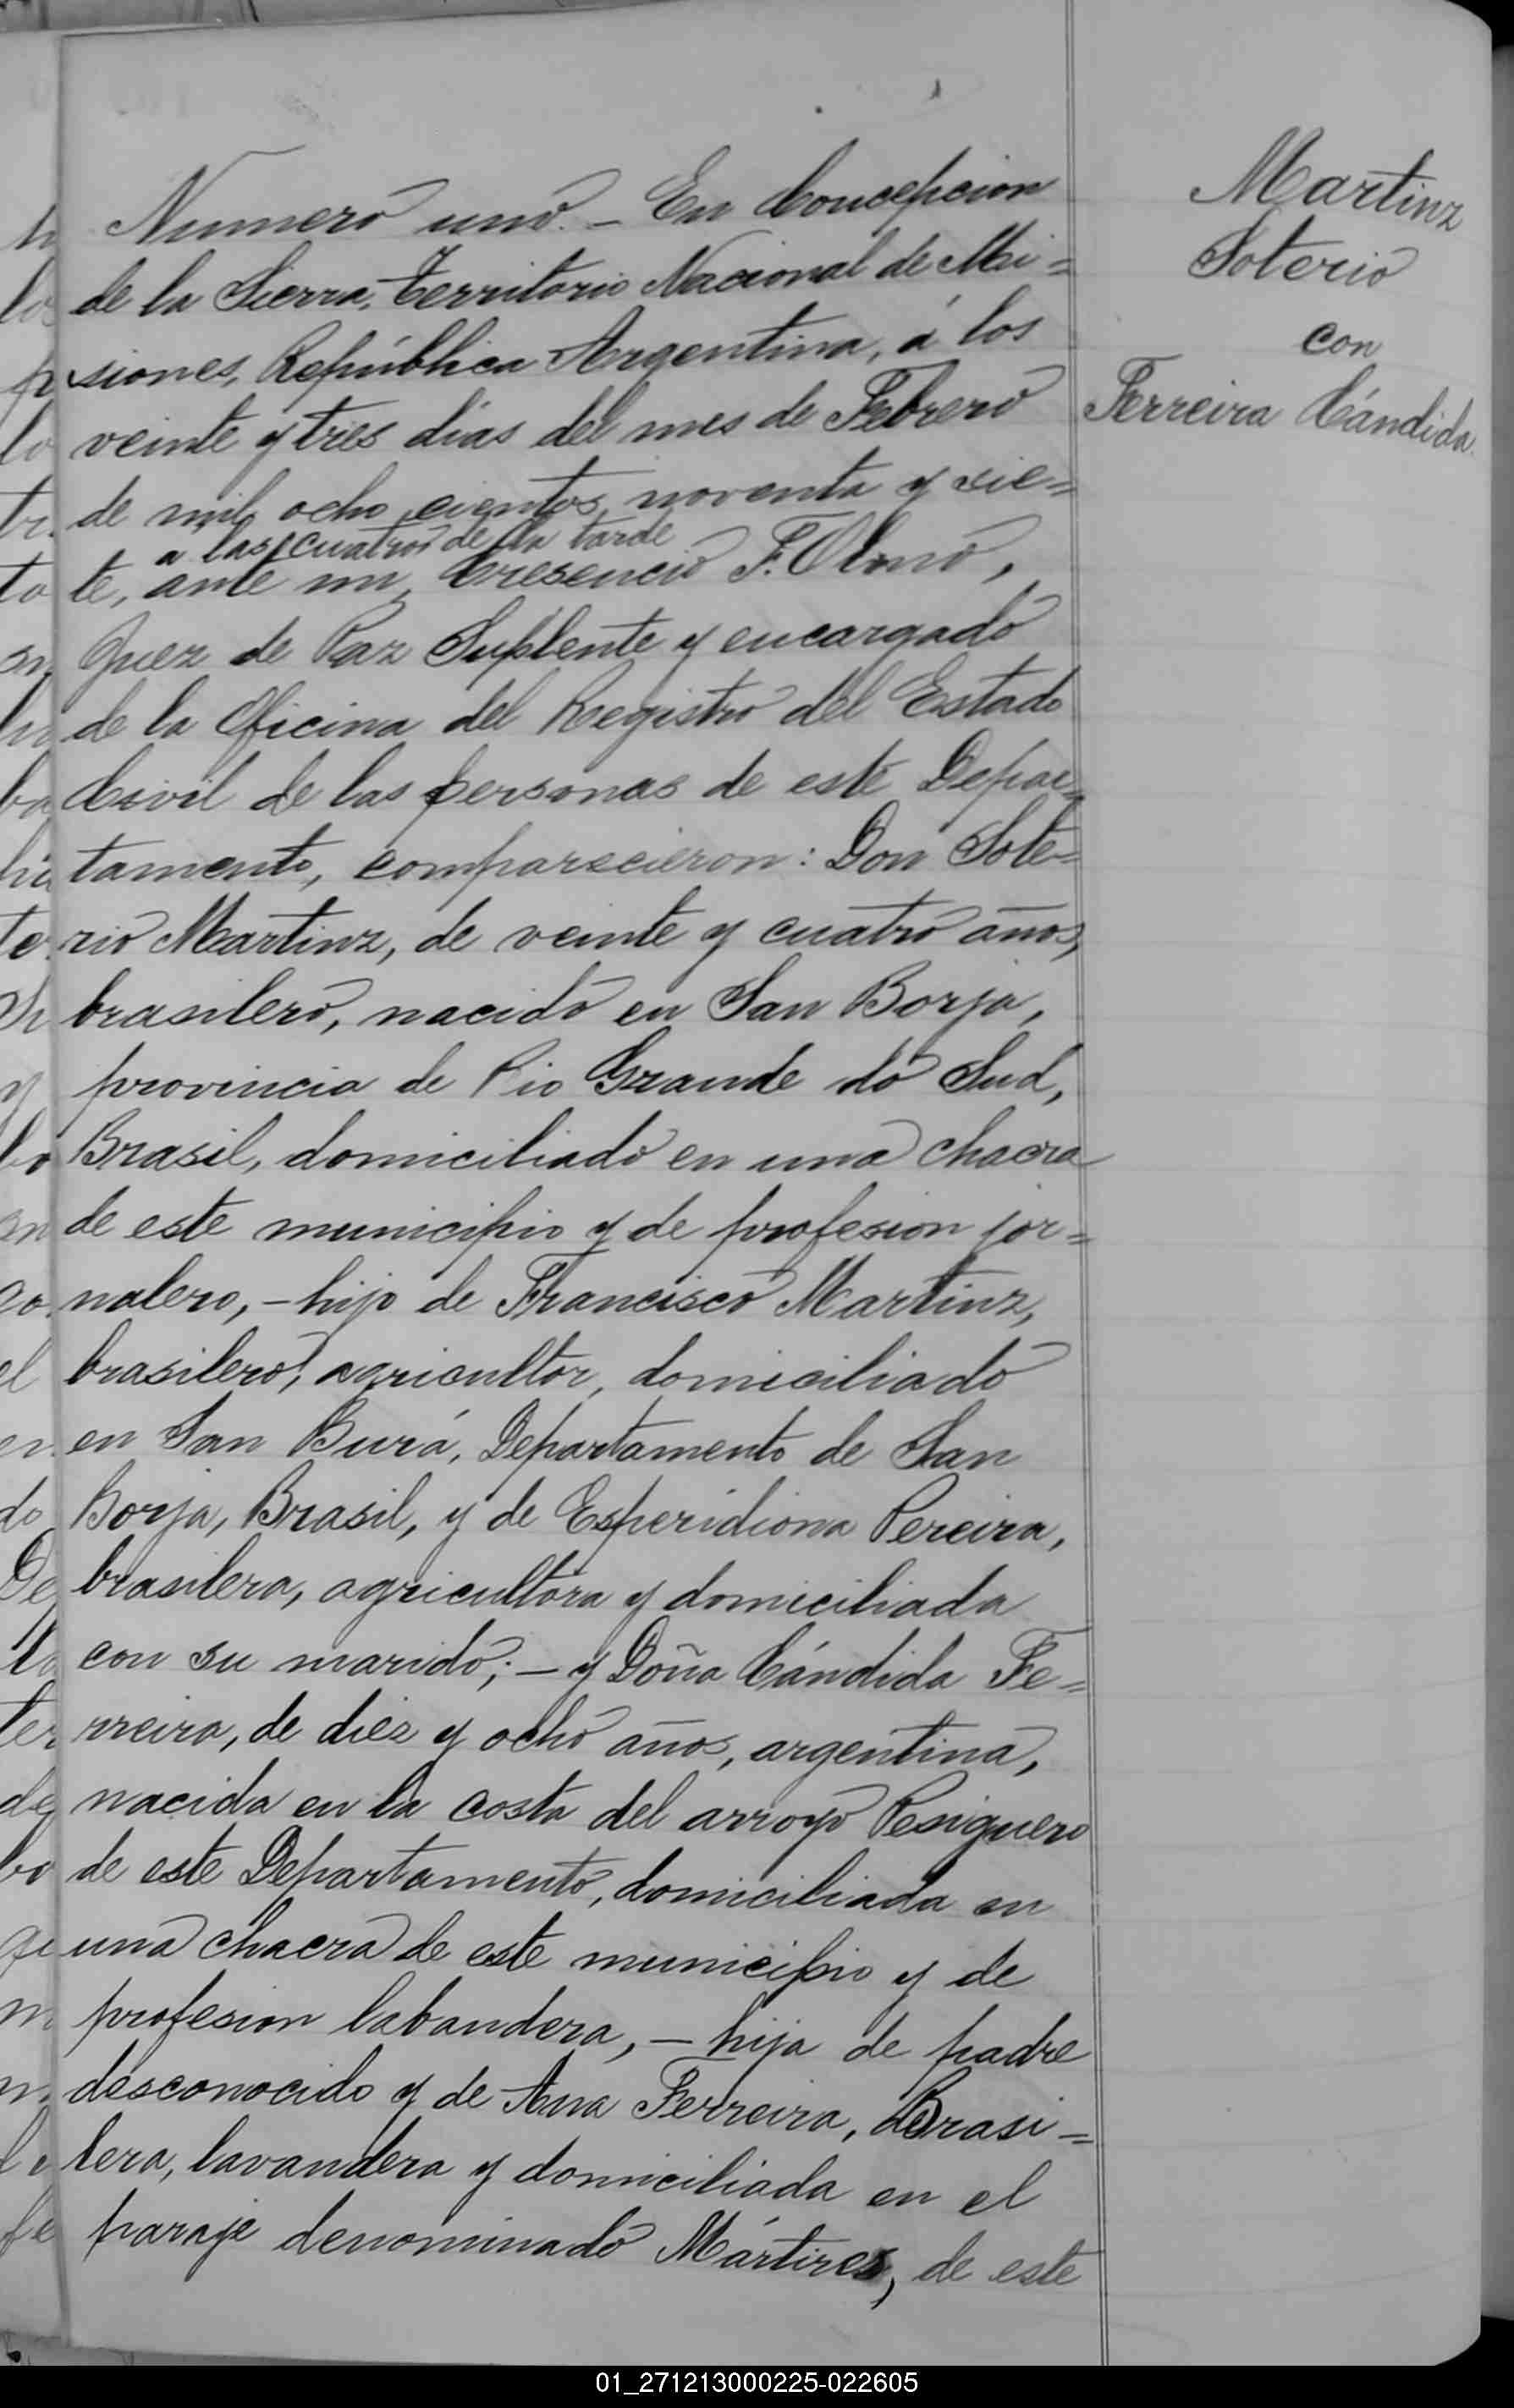 Numero uno. - En Concepcion
de la Sierra, Territorio Nacional de Mi=
siones, República Argentina, á los
veinte y tres dias del mes de Febrero
de mil ocho cientos noventa y sie=
a las cuatro de la tarde
te, ante mi, F. Olmo,
Juez de Paz Suplente y encargado
de la Oficina del Registro del Estado
Civil de las personas de este Depar=
tamento, comparecieron: Don Sote=
rio Martinz, de veinte y cuatro años,
brasilero, nacido en San Borja,
provincia de Rio Grande do Sud,
Brasil, domiciliado en una chacra
de este municipio y de profesion jor=
nalero, - hijo de Francisco Martinz,
brasilero, agricultor, domiciliado
en San Burá, Departamento de San
Borja, Brasil, y de Esperidiona Pereira,
brasilera, agricultora y domiciliada
con su marido; - y Doña Cándida Fe=
rreira, de diez y ocho años, argentina,
nacida en la costa del arroyo Pesiguero
de este Departamento, domiciliada en
una chacra de este municipio y de
profesion labandera, - hija de padre
desconocido y de Ana Ferreira, Brasi=
lera, lavandera y domiciliada en el
paraje denominado Mártires, de este
Martinz
Soterio
con
Ferreira Cándida.
01_271213000225-022605